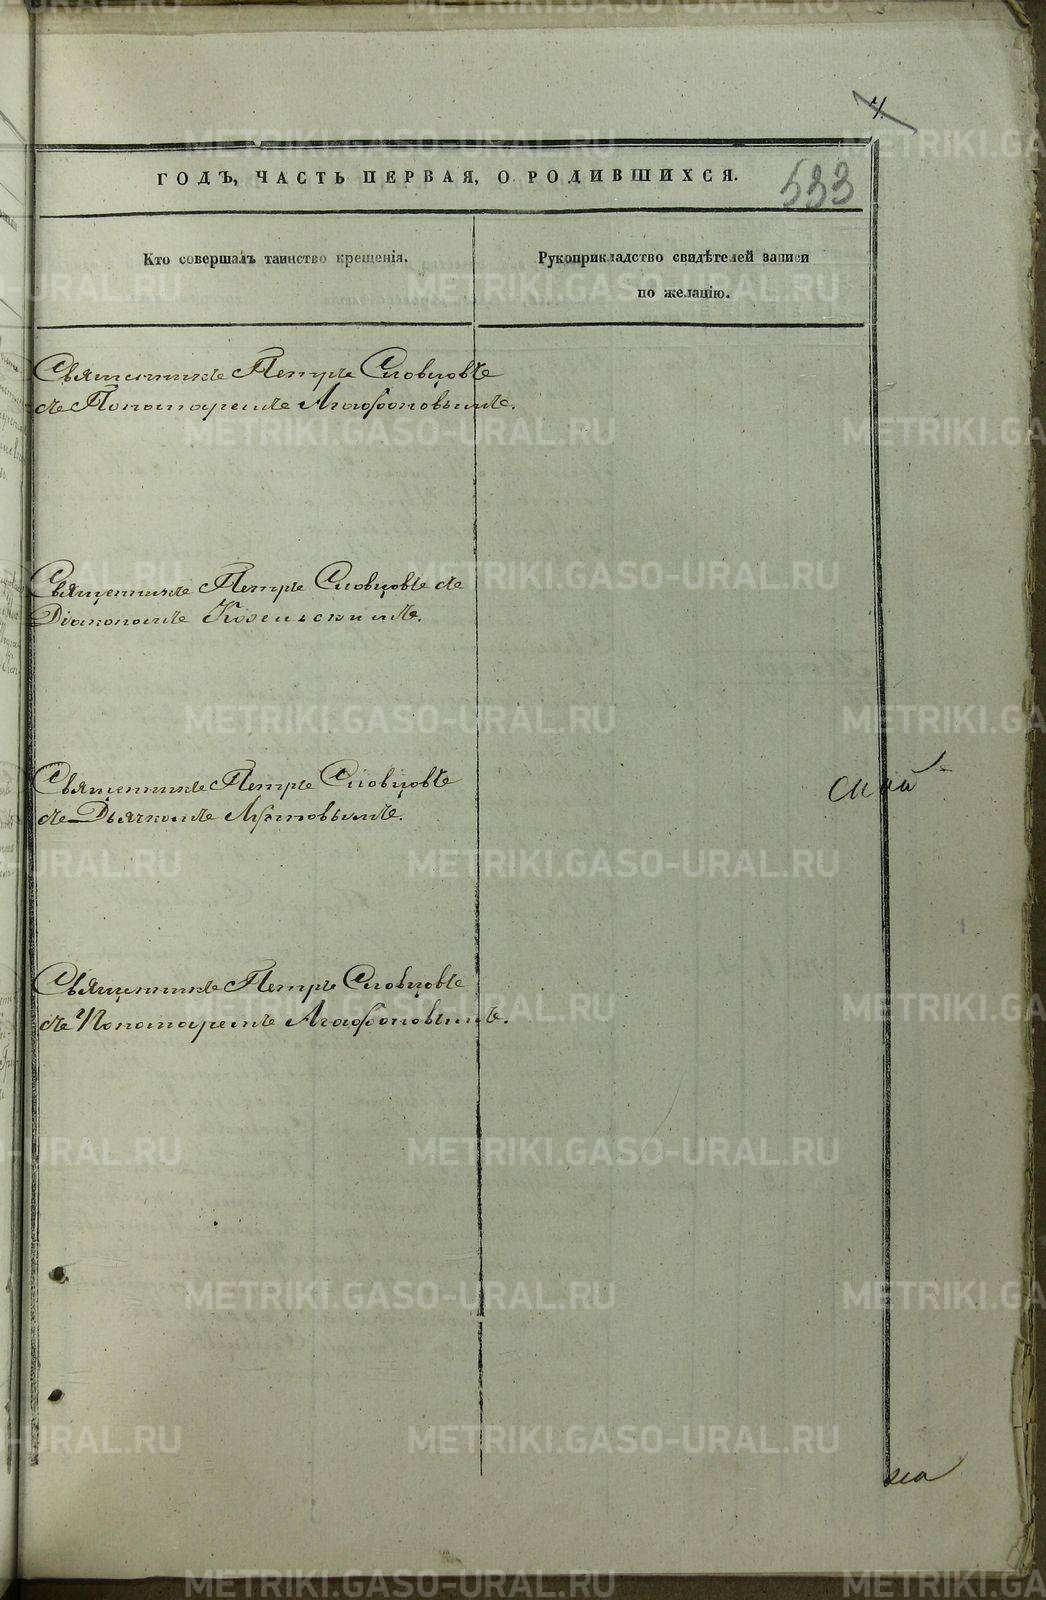 7.
ГОДЪ, ЧАСТЬ ПЕРВАЯ, О РОДИВШИХСЯ.
533
Кто совершалъ таинство крещенія.
Рукоприкладство свидѣтелей записи
по желанію.
Священникъ Петръ Словцовъ
съ Пономаремъ Агафоновымъ.
Священникъ Петръ Словцовъ съ
Діакономъ Козельскимъ.
Священникъ Петръ Словцовъ
съ Дьячкомъ
Священникъ Петръ Словцовъ
съ Пономаремъ Агафоновымъ.
METRIKI.GASO-URAL.RU